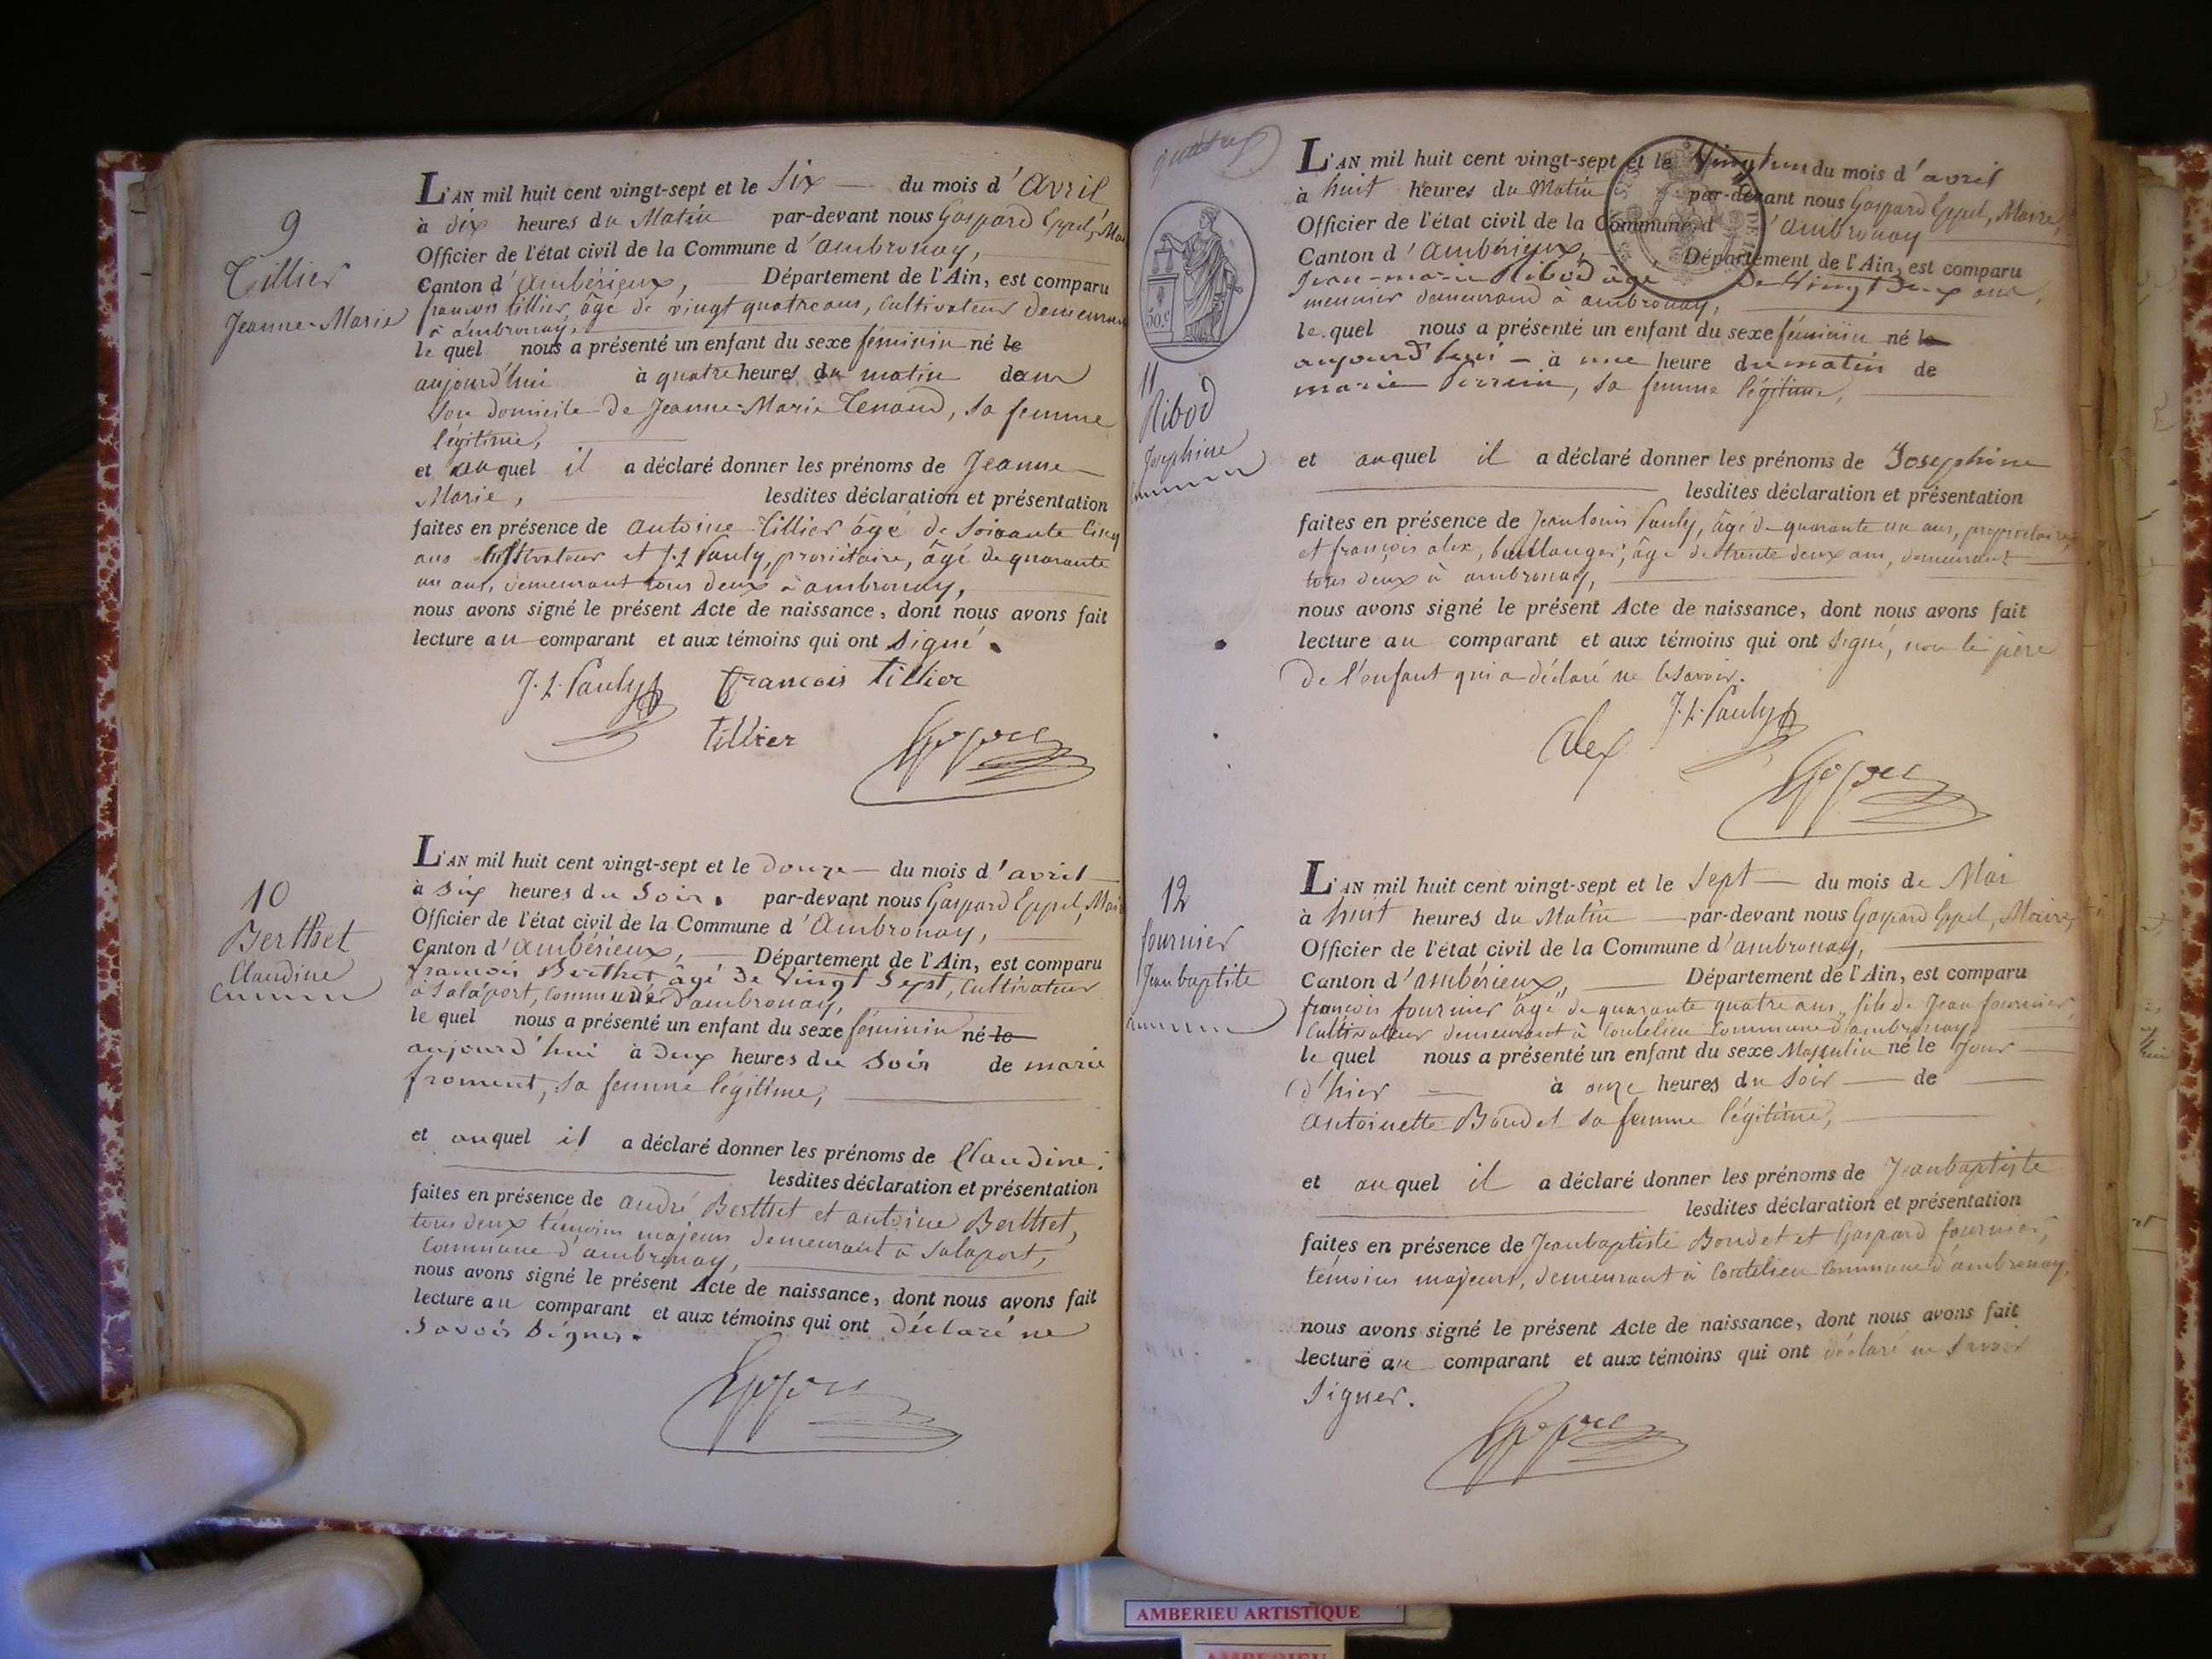 9
Tillier
Jeanne-Marie
L'AN mil huit cent vingt-sept et le Six du mois d'Avril
à dix heures du Matin par-devant nous Gaspard Eppel,
Officier de l'état civil de la Commune d'ambronay,
Canton d'ambérieux, Département de l'Ain, est comparu
françois tillier, âgé de vingt quatre ans, Cultivateur
à ambronay,
le quel nous a présenté un enfant du sexe féminin né le
aujourd'hui à quatre heures du matin dans
son domicile de Jeanne-Marie Tenand, sa femme
légitime,
et auquel il a déclaré donner les prénoms de Jeanne
Marie, lesdites déclaration et présentation
faites en présence de antoine Tillier âgé de Soixante Cinq
ans et J. L Pauly, proriétaire, âgé de quarante
un ans, demeurant tous deux à ambronay,
nous avons signé le présent Acte de naissance, dont nous avons fait
lecture au comparant et aux témoins qui ont signé.
J. L. Pauly françois tillier
tillier
10
Berthet
Claudine
L'AN mil huit cent vingt-sept et le douze du mois d'avril
à six heures du Soir. par-devant nous Gaspard Eppel,
Officier de l'état civil de la Commune d'Ambronay,
Canton d'ambérieux, Département de l'Ain, est comparu
françois Berthet âgé de vingt Sept, Cultivateur
à Salaport, Commune d'ambronay,
le quel nous a présenté un enfant du sexe féminin né le
aujourd'hui à deux heures du Soir de marie
froment, sa femme légitime,
et auquel il a déclaré donner les prénoms de Claudine.
lesdites déclaration et présentation
faites en présence de andré Berthet et antoine Berthet,
tous deux témoins majeurs demeurant à Salaport,
Commune d'ambronay,
nous avons signé le présent Acte de naissance, dont nous avons fait
lecture au comparant et aux témoins qui ont déclaré ne
Savoir Signer.
50 c
11
Ribod
Josephine
L'AN mil huit cent vingt-sept et le Vingt un du mois d'avril
à huit heures du Matin par-devant nous Gaspard Eppel, Maire,
Officier de l'état civil de la Commune d'ambronay
Canton d'Ambérieux, Département de l'Ain, est comparu
Jean-marie Ribod âgé de Vingt Deux ans,
meunier demeurand à ambronay,
le quel nous a présenté un enfant du sexe féminin né le
aujourd'hui à une heure du matin de
marie Perrein, sa femme légitime,
et auquel il a déclaré donner les prénoms de Josephine
lesdites déclaration et présentation
faites en présence de Jean Louis Pauly, âgé de quarante un ans, proprietaire,
et françois alex, boullanger, âgé de trente deux ans, demeurant
tous deux à ambronay,
nous avons signé le présent Acte de naissance, dont nous avons fait
lecture au comparant et aux témoins qui ont signé, non le père
De l'enfant qui a déclaré ne le savoir.
Alex J. L. Pauly
12
fournier
Jeanbaptiste
L'AN mil huit cent vingt-sept et le Sept du mois de Mai
à huit heures du Matin par-devant nous Gaspard Eppel, Maire,
Officier de l'état civil de la Commune d'ambronay,
Canton d'ambérieux, Département de l'Ain, est comparu
françois fournier âgé de quarante quatre ans, fils de Jean fournier,
Cultivateur demeurant à Coutelieu Commune d'ambronay,
le quel nous a présenté un enfant du sexe Masculin né le Jour
d'hier à onze heures du Soir de
Antoinette Boudet sa femme légitime,
et auquel il a déclaré donner les prénoms de Jeanbaptiste
lesdites déclaration et présentation
faites en présence de Jeanbaptiste Boudet et Gaspard fournier,
témoins majeurs, demeurant à Coutelieu Commune d'ambronay.
nous avons signé le présent Acte de naissance, dont nous avons fait
lecture au comparant et aux témoins qui ont déclaré ne Savoir
Signer.
AMBERIEU ARTISTIQUE
AMBERIEU